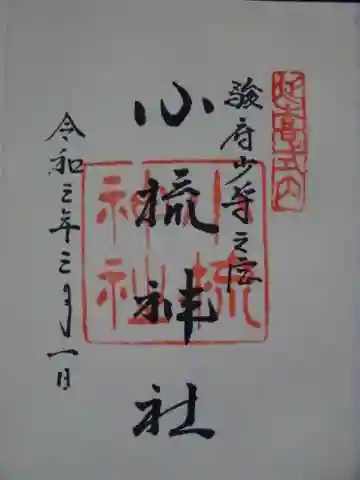 延喜式内
駿府少将之宮
小梳神社
小梳神社
令和三年三月一日